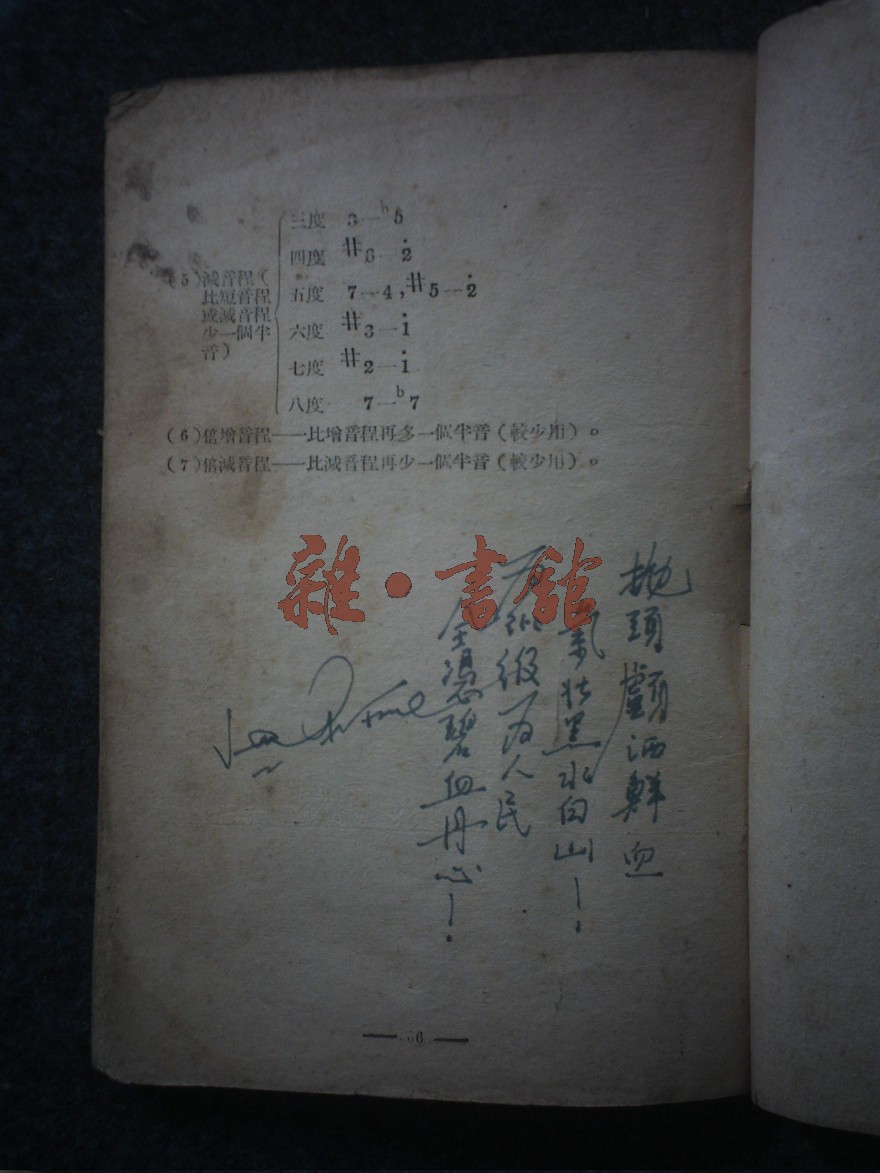 (5)減音程(
比短音程
或減音程
少一個半
音)
三度 3—b5
四度 #6—2̇
五度 7—4,#5—2̇
六度 #3—1̇
七度 #2—1̇
八度 7—b7
(6)倍增音程——比增音程再多一個半音(較少用)。
(7)倍減音程——比減音程再少一個半音(較少用)。
雜·書館
拋頭顱洒鮮血
氣壯黑水白山!
為人民
全憑碧血丹心!